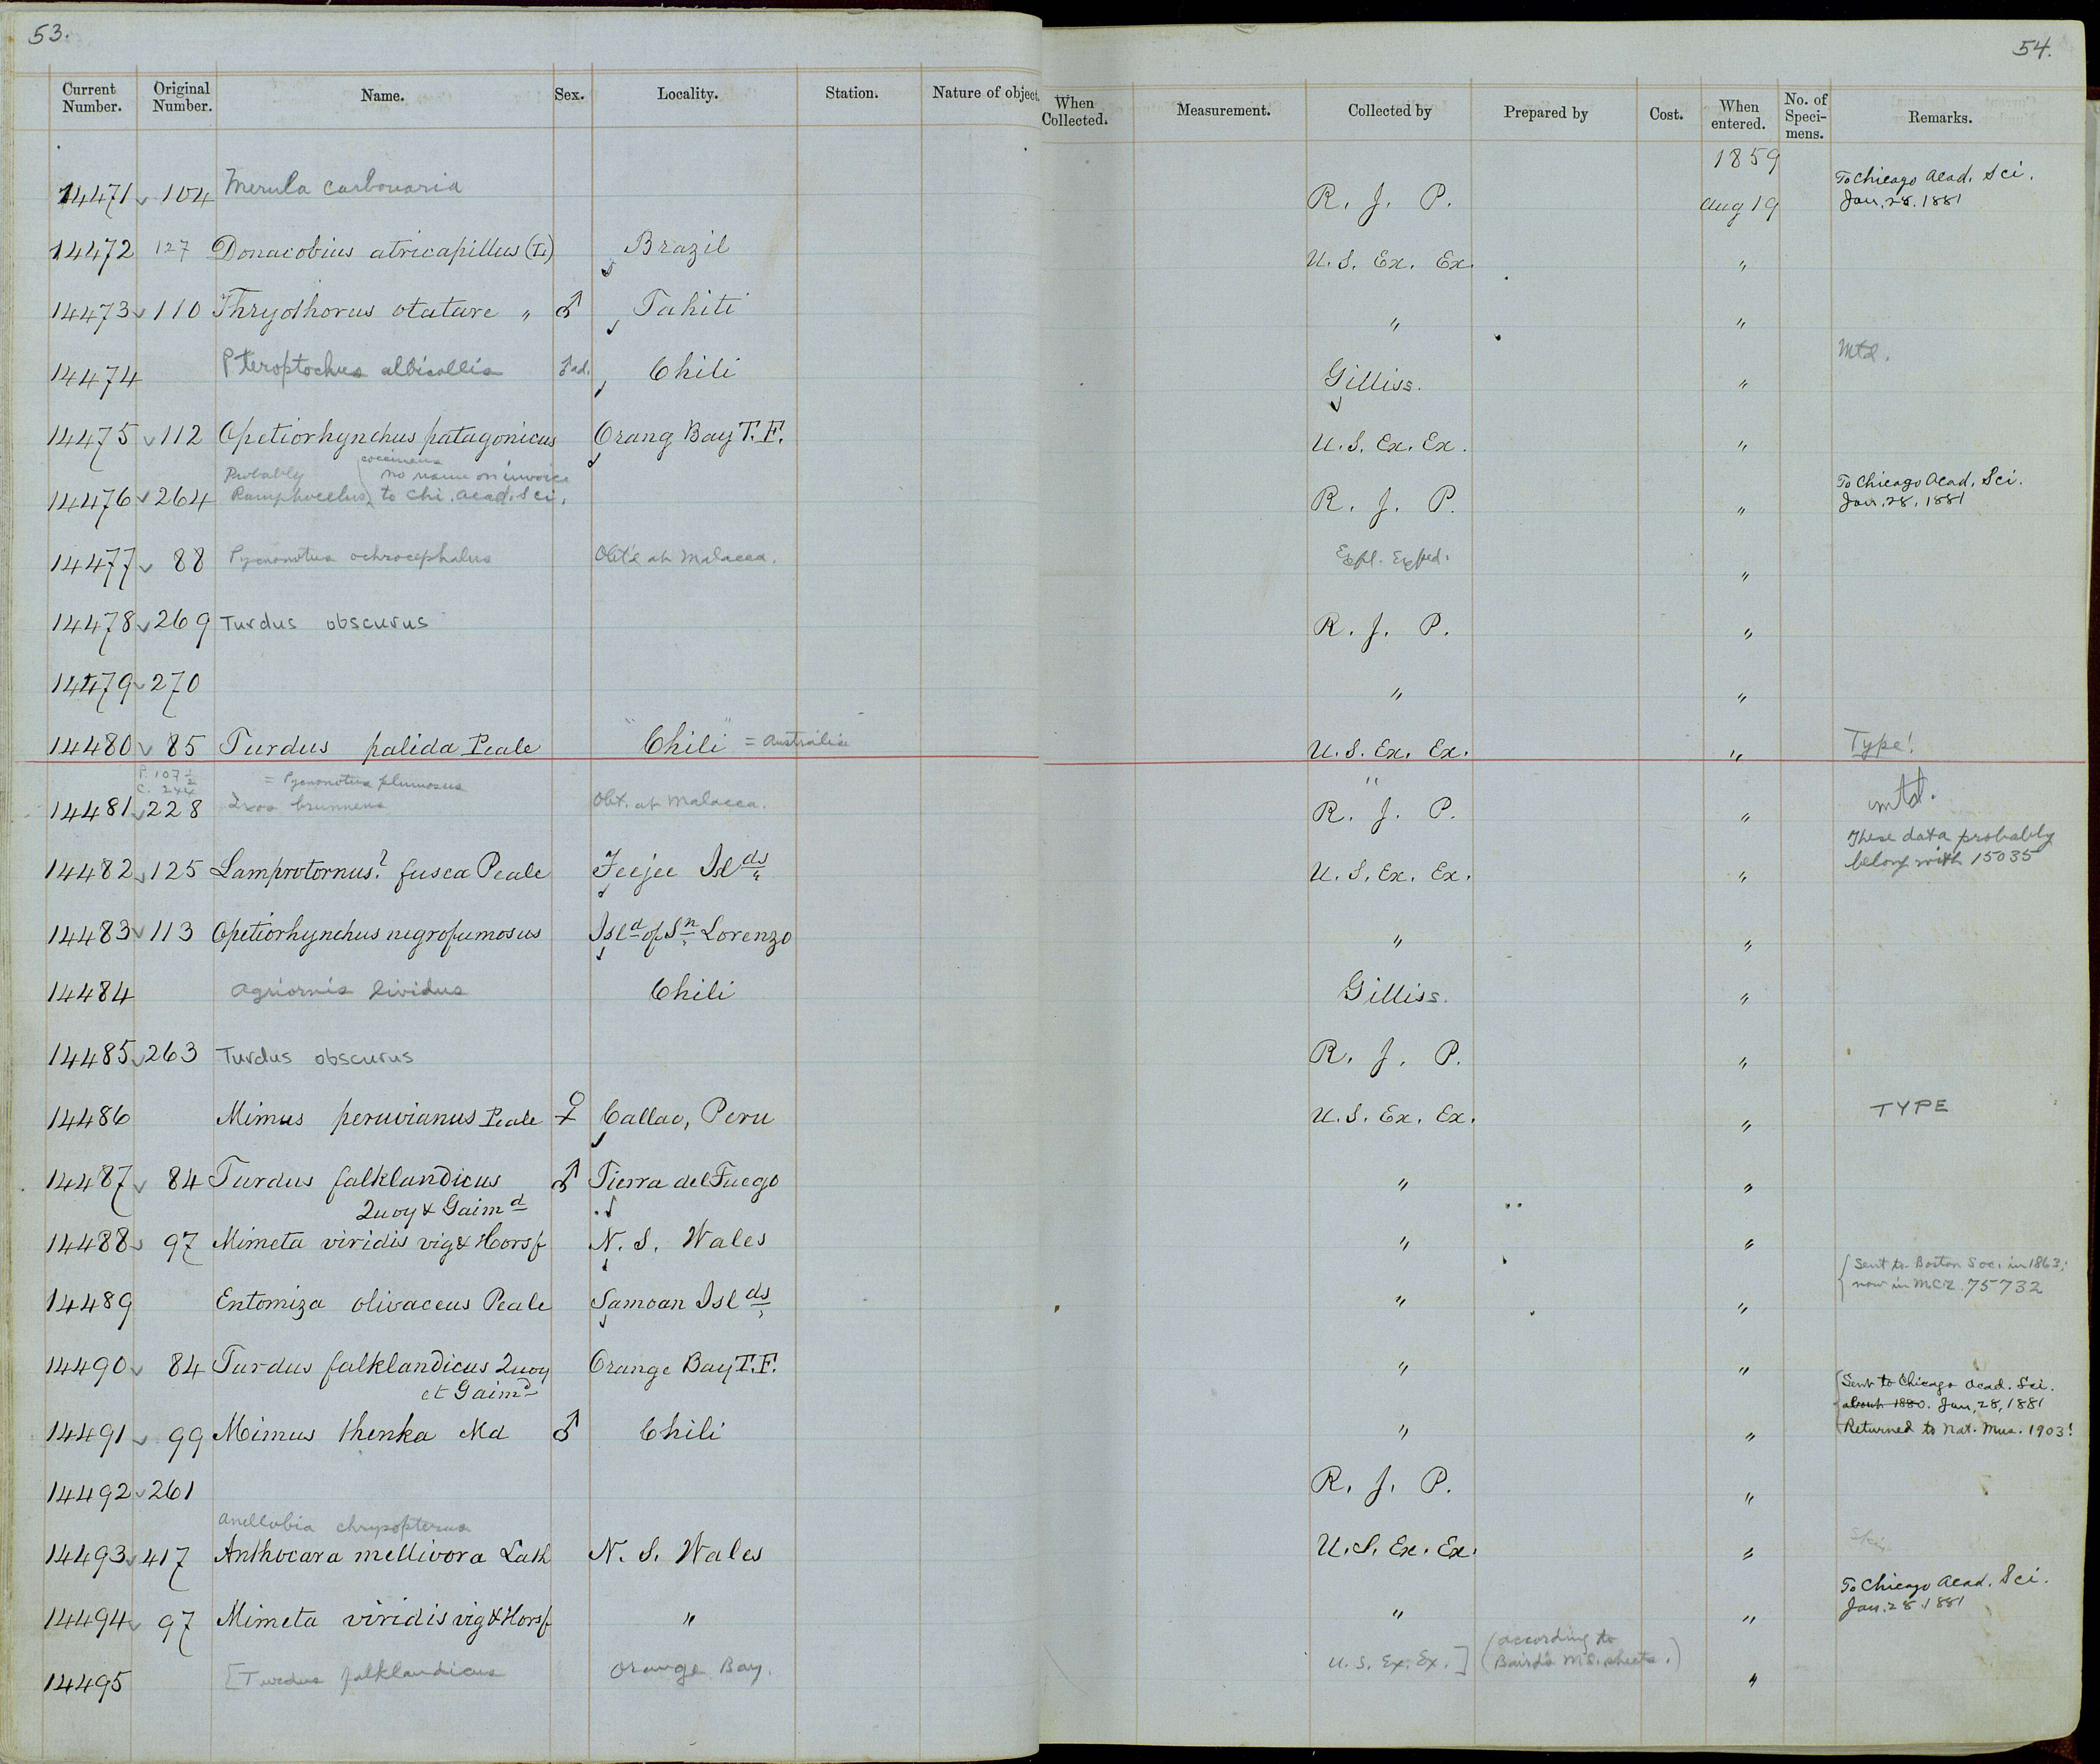 53.
54.
Current Number. Original Number. Name. Sex. Locality. Station. Nature of object. When Collected. Measurement. Collected by Prepared by Cost. When entered. No. of Speci-mens. Remarks.
1859
14471 104 Merula carbonaria R. J. P. Aug 19 To Chicago Acad. Sci.
Jan. 28. 1881
14472 127 Donacobius atricapillus (L) Brazil U. S. Ex. Ex. "
14473 110 Thryothorus otatare " ♂ Tahiti " "
14474 Pteroptochus albicollis ♂ad. Chili Gilliss. " Mtd.
14475 112 Opetiorhynchus patagonicus Orang Bay T. F. U. S. Ex. Ex. "
Probably coccineus no name on invoice
14476 264 Ramphocelus, to Chi. Acad. Sci. R. J. P. " To Chicago Acad. Sci.
Jan. 28. 1881
14477 88 Pycnonotus ochrocephalus Obt'd at Malacca. Expl. Exped. "
14478 269 Turdus obscurus R. J. P. "
14479 270 " "
14480 85 Turdus palida Peale "Chili" = Australia U. S. Ex. Ex. " Type!
P. 107½ = Pycnonotus plumosus "
C. 244
14481 228 Ixos brunneus Obt. at Malacca. R. J. P. " mtd.
These data probably
belong with 15035
14482 125 Lamprotornus? fusca Peale Feejee Islds U. S. Ex. Ex. "
14483 113 Opetiorhynchus negrofumosus Isld of Sn Lorenzo " "
14484 Agriornis lividus Chili Gilliss. "
14485 263 Turdus obscurus R. J. P. "
14486 Mimus peruvianus Peale ♀ Callao, Peru U. S. Ex. Ex. " TYPE
14487 84 Turdus falklandicus ♂ Tierra del Fuego " "
Quoy & Gaimd
14488 97 Mimeta viridis vig & Horsf N. S. Wales " "
Sent to Boston Soc. in 1863;
now in MCZ. 75732
14489 Entomiza olivaceus Peale Samoan Islds " "
14490 84 Turdus falklandicus Quoy Orange Bay T. F. " "
et Gaimd
Sent to Chicago Acad. Sci.
about 1880. Jan, 28, 1881
Returned to Nat. Mus. 1903!
14491 99 Mimus thenka Md ♂ Chili " "
14492 261 R. J. P. "
Anellobia chrysopterus
14493 417 Anthocara mellivora Lath N. S. Wales U. S. Ex. Ex. " Skin
To Chicago Acad. Sci.
Jan. 28. 1881
14494 97 Mimeta viridis vig & Horsf " " "
14495 [Turdus falklandicus Orange Bay. U. S. Ex. Ex.] (according to "
Baird's MS. sheets.)